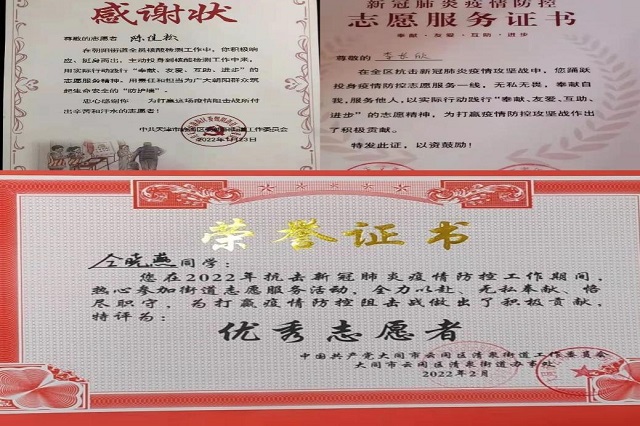 感谢状
尊敬的志愿者
在朝阳街道全员核酸检测工作中，你积极响
应、挺身而出，主动投身到核酸检测工作中来，
用实际行动践行“奉献、友爱、互助、进步”的
志愿服务精神，用责任和担当为广大朝阳群众筑
起生命安全的“防护墙”。
忠心感谢你 为打赢这场疫情阻击战所付
出辛苦和汗水的志愿者！
2022年1月23日
新冠肺炎疫情防控
志愿服务证书
奉献·友爱·互助·进步
尊敬的 李长欣
在全区抗击新冠肺炎疫情攻坚战中，您踊跃
投身疫情防控志愿服务一线，无私无畏，奉献自
我，服务他人，以实际行动践行“奉献、友爱、互助、
进步”的志愿精神，为打赢疫情防控攻坚战作出
了积极贡献。
特发此证，以资鼓励！
荣誉证书
仝晓燕同学：
您在2022年抗击新冠肺炎疫情防控工作期间，
热心参加街道志愿服务活动，全力以赴、无私奉献、恪
尽职守，为打赢疫情防控阻击战做出了积极贡献，
特评为：
优秀志愿者
中国共产党大同市云冈区清泉街道工作委员会
大同市云冈区清泉街道办事处
2022年2月